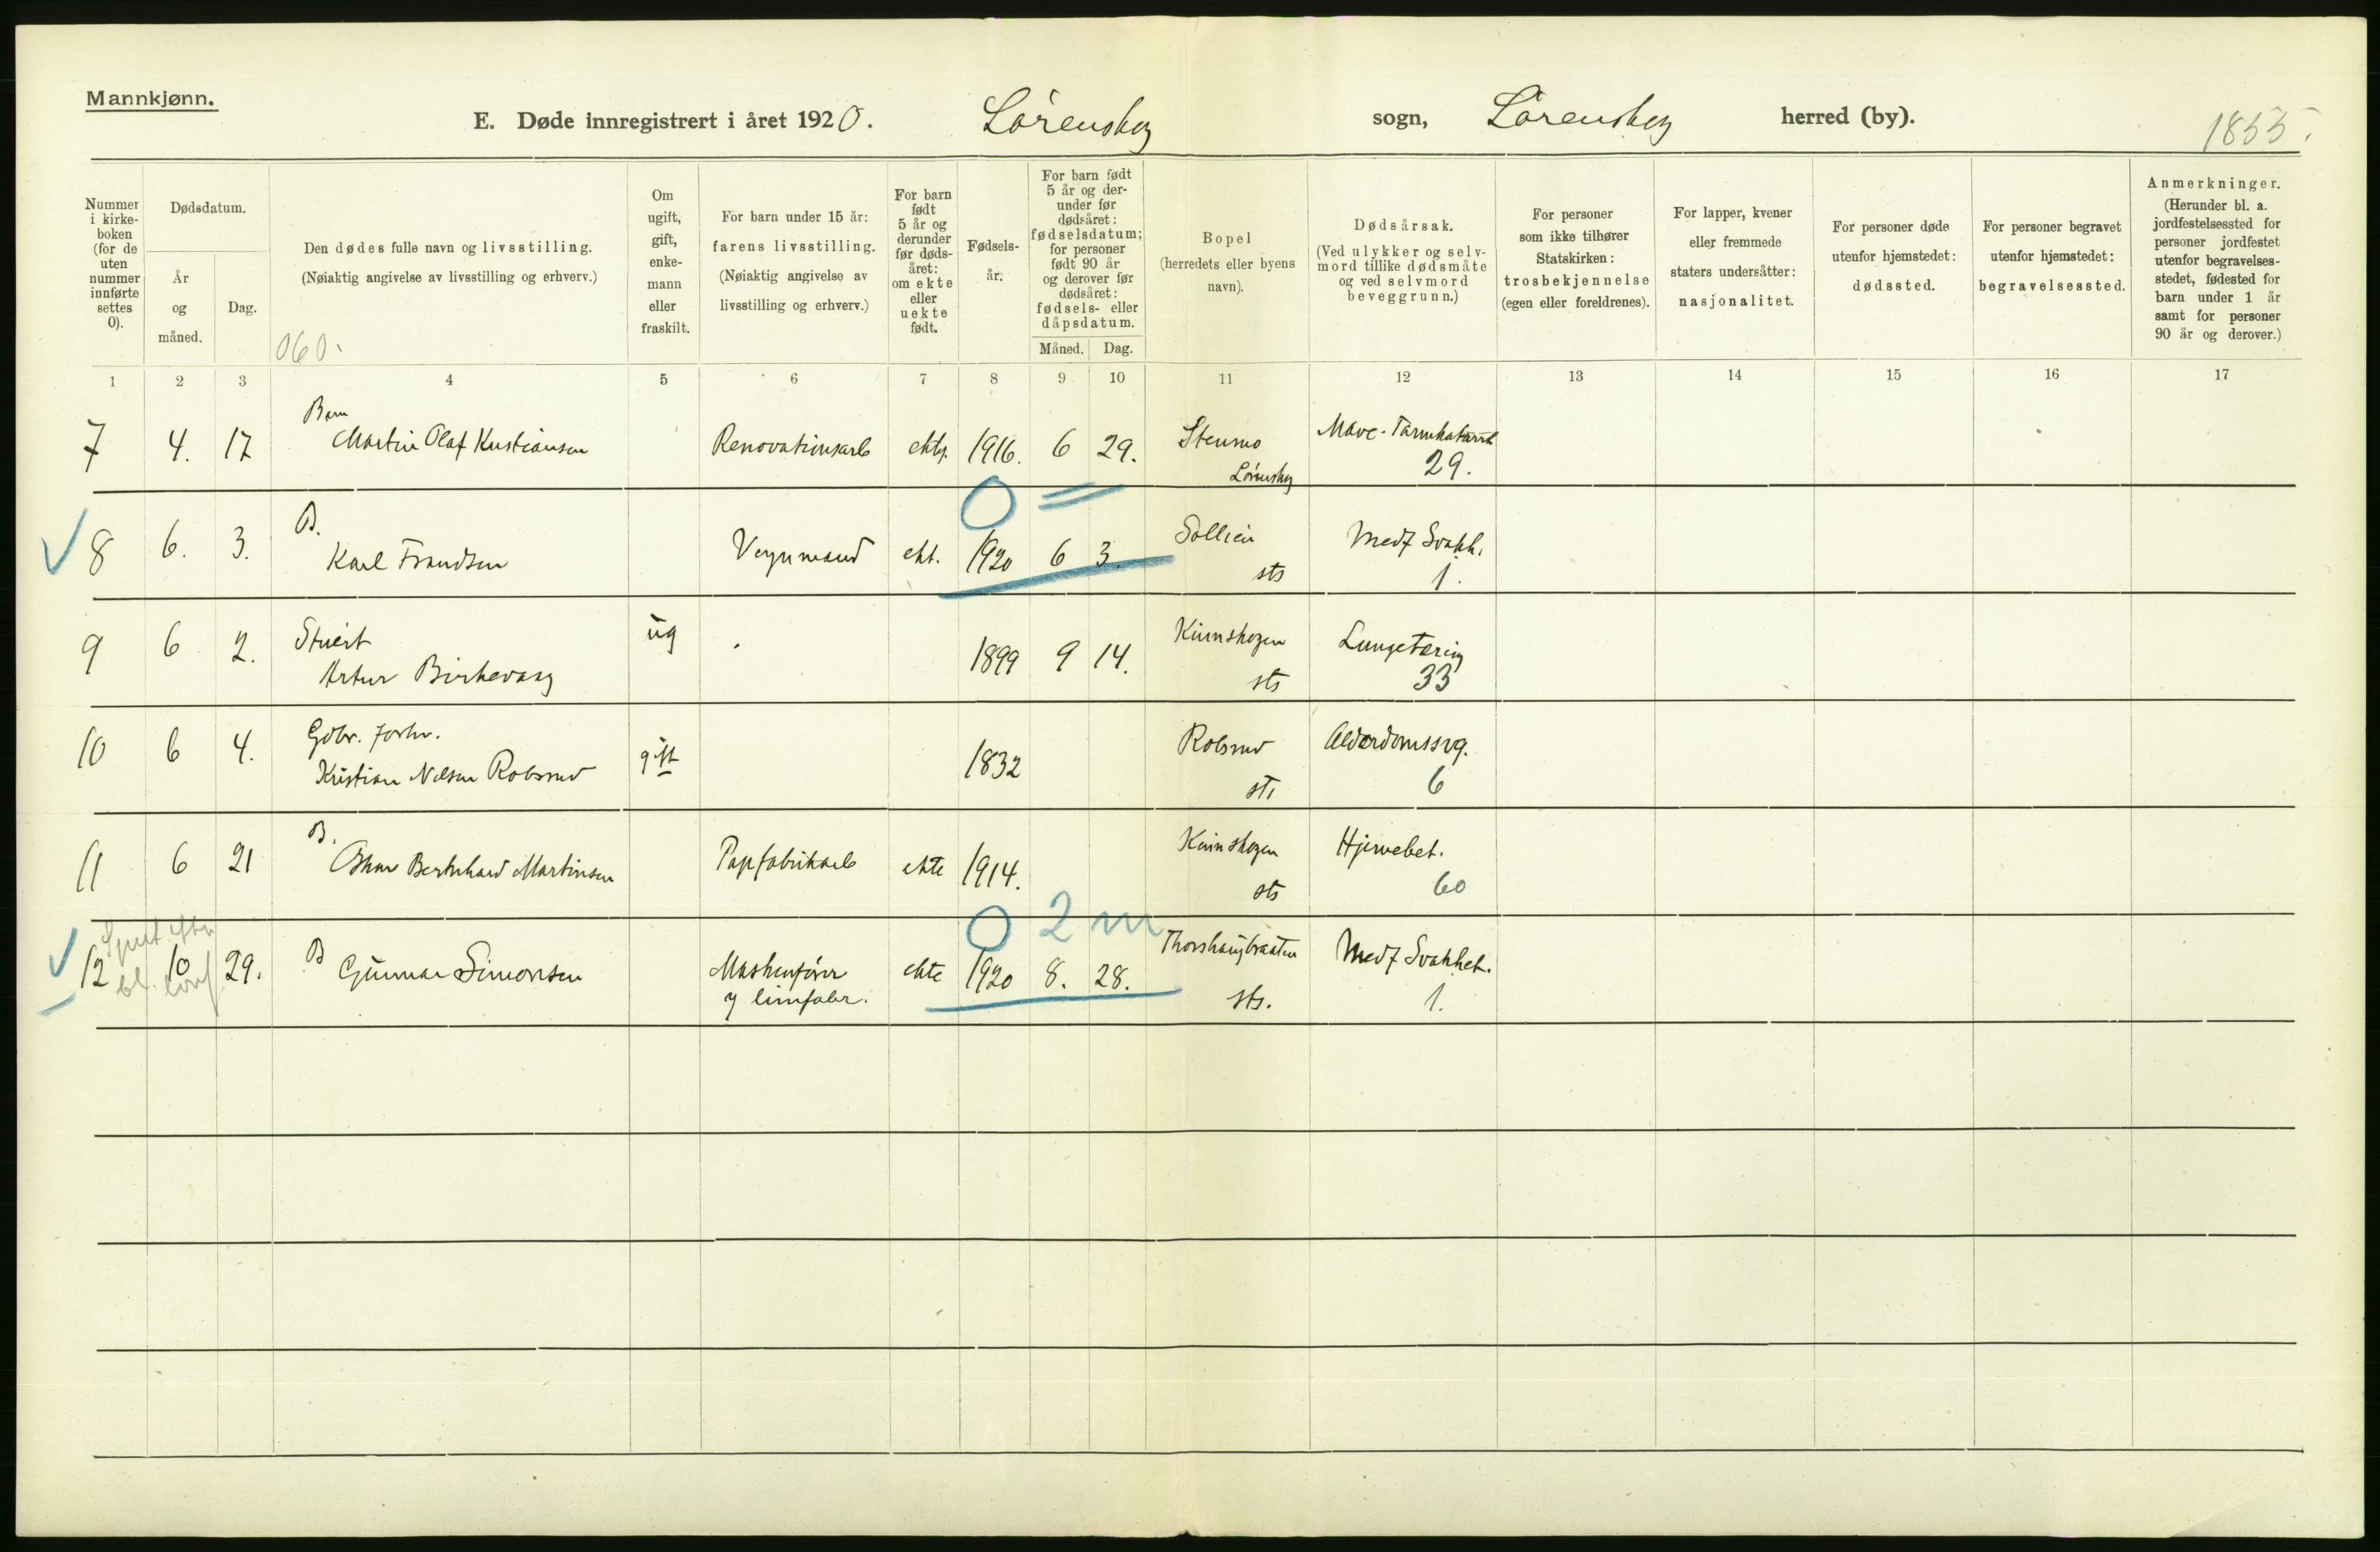 Mannkjønn.
E. Døde innregistrert i året 1920. Lørenskog sogn, Lørenskog herred (by). 1855.
Nummer i kirke-boken (for de uten nummer innførte settes 0).
Dødsdatum.
År og måned.
Dag.
Den dødes fulle navn og livsstilling.
(Nøiaktig angivelse av livsstilling og erhverv.)
060.
Om ugift, gift, enke-mann eller fraskilt.
For barn under 15 år:
farens livsstilling.
(Nøiaktig angivelse av
livsstilling og erhverv.)
For barn født 5 år og derunder før døds-året: om ekte eller uekte født.
Fødsels-år.
For barn født 5 år og der-under før dødsåret: fødselsdatum; for personer født 90 år og derover før dødsåret: fødsels- eller dåpsdatum.
Måned. Dag.
Bopel
(herredets eller byens
navn).
Dødsårsak.
(Ved ulykker og selv-
mord tillike dødsmåte
og ved selvmord
beveggrunn.)
For personer
som ikke tilhører
Statskirken:
trosbekjennelse
(egen eller foreldrenes).
For lapper, kvener
eller fremmede
staters undersåtter:
nasjonalitet.
For personer døde
utenfor hjemstedet:
dødssted.
For personer begravet
utenfor hjemstedet:
begravelsessted.
Anmerkninger.
(Herunder bl. a.
jordfestelsessted for
personer jordfestet
utenfor begravelses-
stedet, fødested for
barn under 1 år
samt for personer
90 år og derover.)
1 2 3 4 5 6 7 8 9 10 11 12 13 14 15 16 17
Barn
7 4. 17 Martin Olaf Kristiansen Renovationsarb ekte. 1916. 6 29. Stensno Mave-Tarmkatarrh
Lørenskog 29.
0 =
B.
8 6. 3. Karl Frandsen Vognmand ekt. 1920 6 3. Sollien Medf Svakh.
sts 1.
9 6 2. Stuert ug 1899 9 14. Kinnskogen Lungetæring
Artur Birkevang sts 33
10 6 4. Gdbr. forhv. gift 1832 Robsrud Alderdomssvg.
Kristian Nilsen Robsrud sts 6
B.
11 6 21 Oskar Bernhard Martinsen Papfabrikarb ekte 1914. Kinnskogen Hjernebet.
sts 60
0 2 m
12 10 29. B Gunnar Simonsen Maskinfører ekte 1920 8. 28. Thorshaugbraaten Medf Svakhet.
bl. y limfabr. sts. 1.